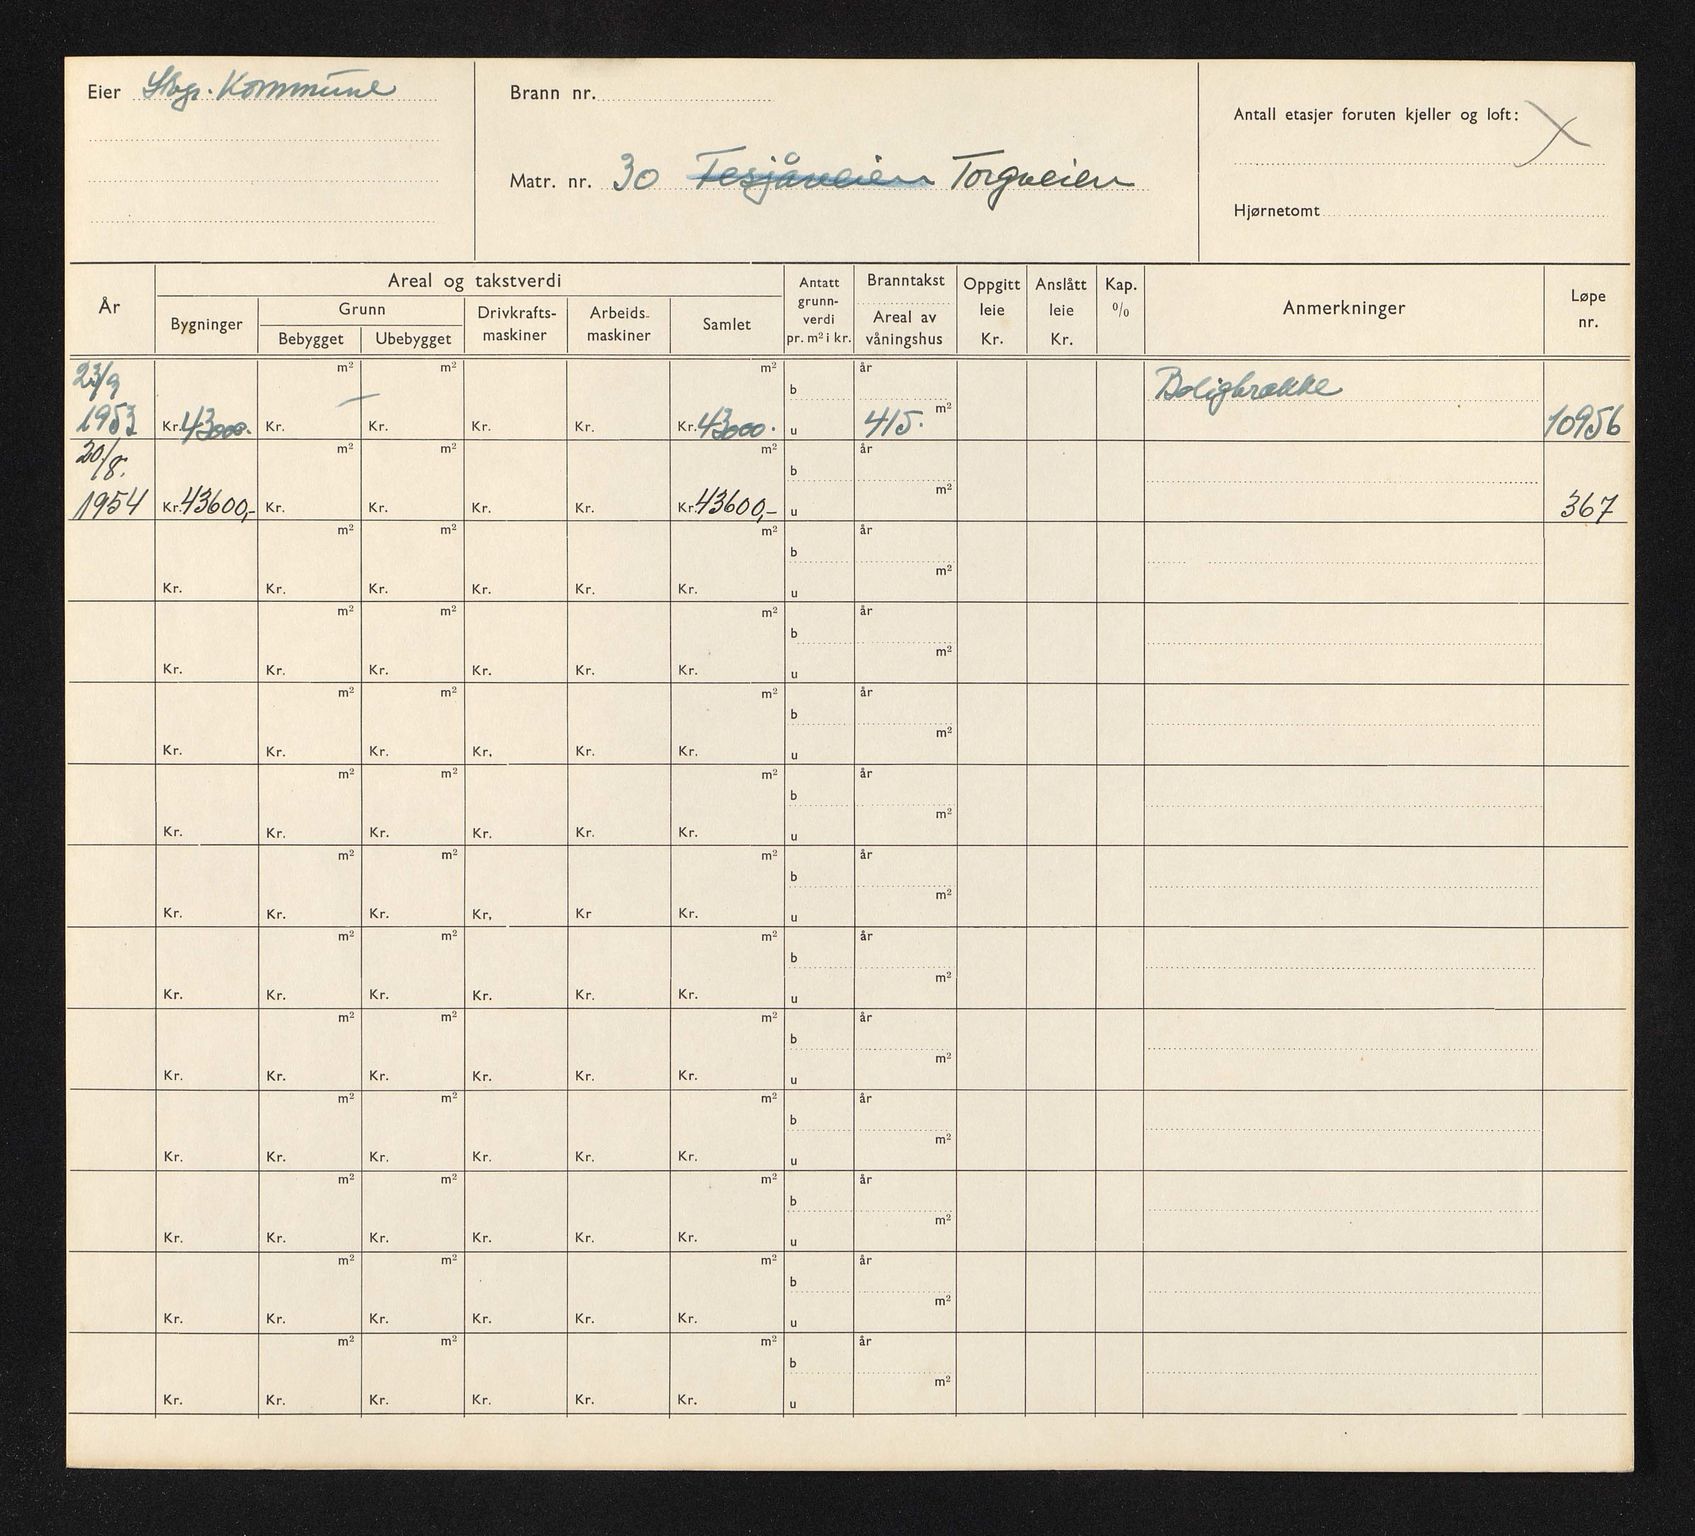 Eier Stvgr. Kommune
Brann nr.
Matr. nr. 30 Tesjåveien Torgveien
Antall etasjer foruten kjeller og loft:
Hjørnetomt
År
Areal og takstverdi
Bygninger
Grunn
Bebygget
Ubebygget
Drivkrafts-
maskiner
Arbeids-
maskiner
Samlet
Antatt
grunn-
verdi
pr. m² i kr.
Branntakst
Areal av
våningshus
Oppgitt
leie
Kr.
Anslått
leie
Kr.
Kap.
%
Anmerkninger
Løpe
nr.
23/9 m² m² m² b år Boligbrakke
1953 Kr. 43000.- Kr. Kr. Kr. Kr. Kr. 43000.- u 415. m² 10956
20/8. m² m² m² b år
1954 Kr. 43600,- Kr. Kr. Kr. Kr. Kr. 43600,- u m² 367
m² m² m² b år
Kr. Kr. Kr. Kr. Kr. Kr. u m²
m² m² m² b år
Kr. Kr. Kr. Kr. Kr. Kr. u m²
m² m² m² b år
Kr. Kr. Kr. Kr. Kr. Kr. u m²
m² m² m² b år
Kr. Kr. Kr. Kr. Kr. Kr. u m²
m² m² m² b år
Kr. Kr. Kr. Kr, Kr Kr. u m²
m² m² m² b år
Kr. Kr. Kr. Kr. Kr. Kr. u m²
m² m² m² b år
Kr. Kr. Kr. Kr. Kr. Kr. u m²
m² m² m² b år
Kr. Kr. Kr. Kr. Kr. Kr. u m²
m² m² m² b år
Kr. Kr. Kr. Kr. Kr. Kr. u m²
m² m² m² b år
Kr. Kr. Kr. Kr. Kr. Kr. u m²
m² m² m² b år
Kr. Kr. Kr. Kr. Kr. Kr. u m²